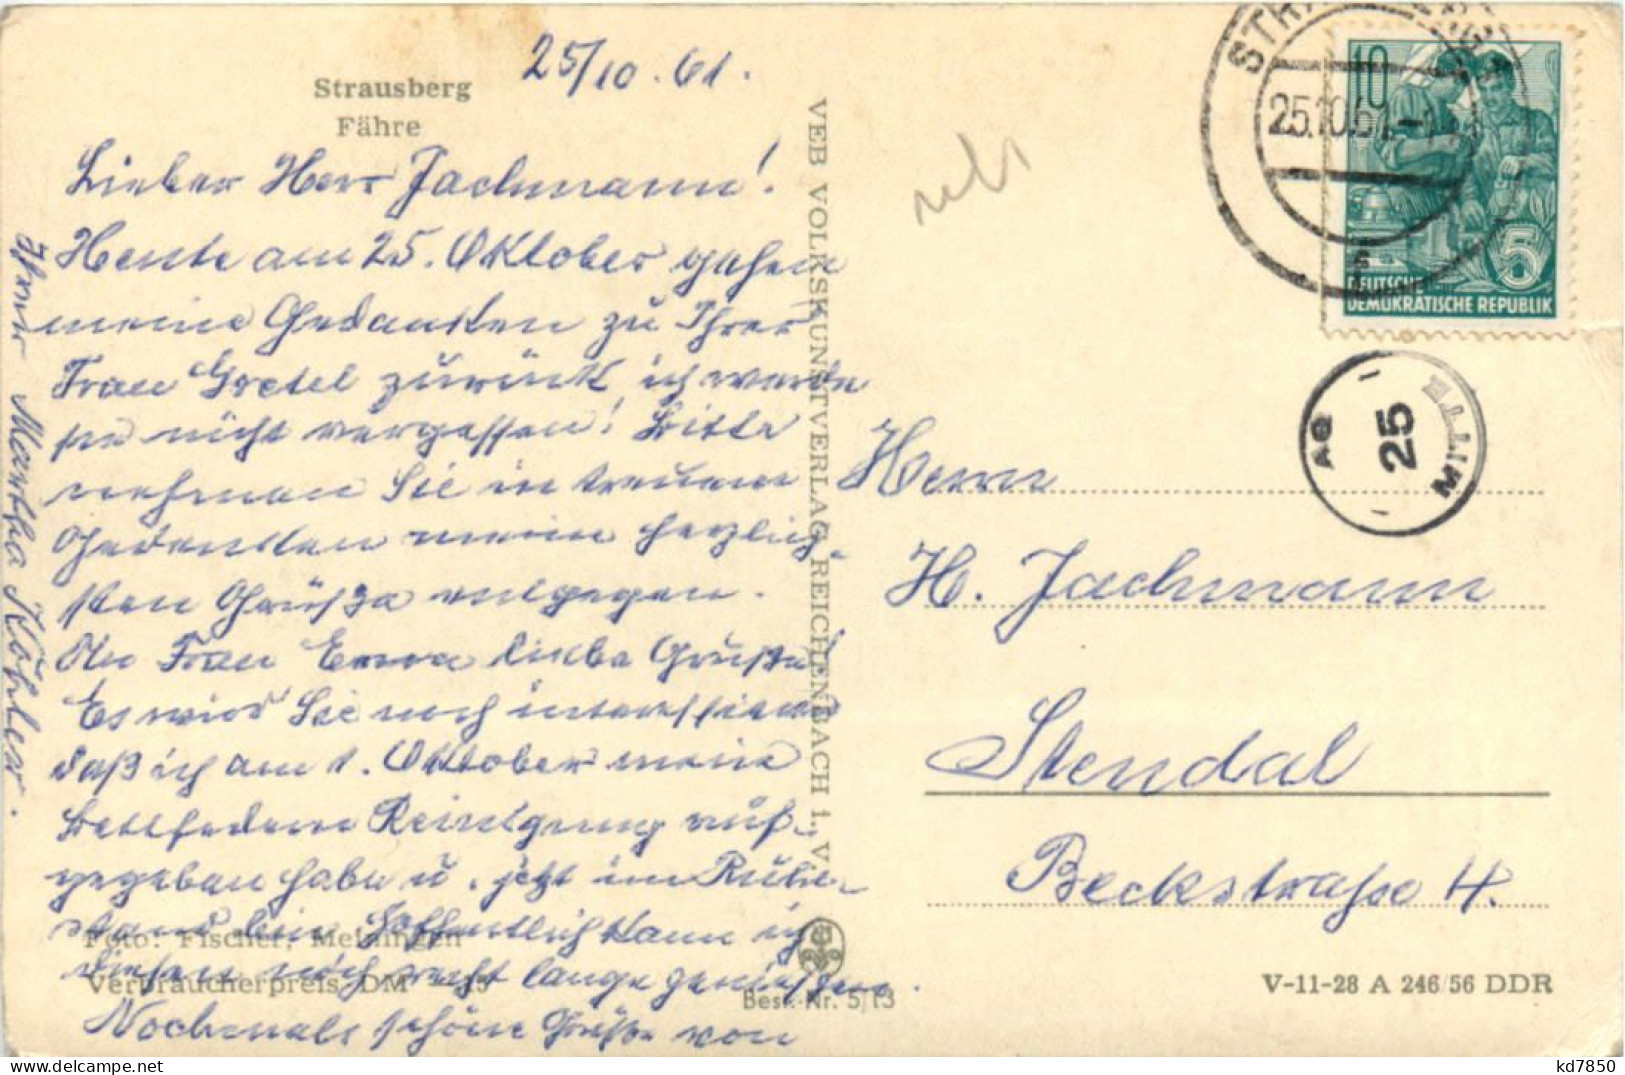 Strausberg
Fähre
25/10.61.
Lieber Herr Jachmann!
Heute am 25. Oktober gehen
meine Gedanken zu Ihrer
Frau Gretel zurück ich werde
sie nicht vergessen! Bitte
nehmen Sie in treuem
Gedenken meine herzlig-
sten Grüße entgegen.
An Frau Erna liebe Grüße!
Es wird Sie noch interessieren
daß ich am 1. Oktober meine
Bettfedern Reinigung auf-
gegeben habe u. jetzt im Ruhe-
stand bin Hoffentlich kann ich
diesen noch recht lange genießen.
Nochmals schöne Grüße von
Ihrer Martha Köhler.
Foto: Fischer, Meiningen
Verbraucherpreis DM -,15
Best.-Nr. 5/13
VEB VOLKSKUNSTVERLAG REICHENBACH i. V.
25.10.61
10
5
DEUTSCHE
DEMOKRATISCHE REPUBLIK
AQ
25
MITTE
Herrn
H. Jachmann
Stendal
Beckstraße 4.
V-11-28 A 246/56 DDR
kd7850